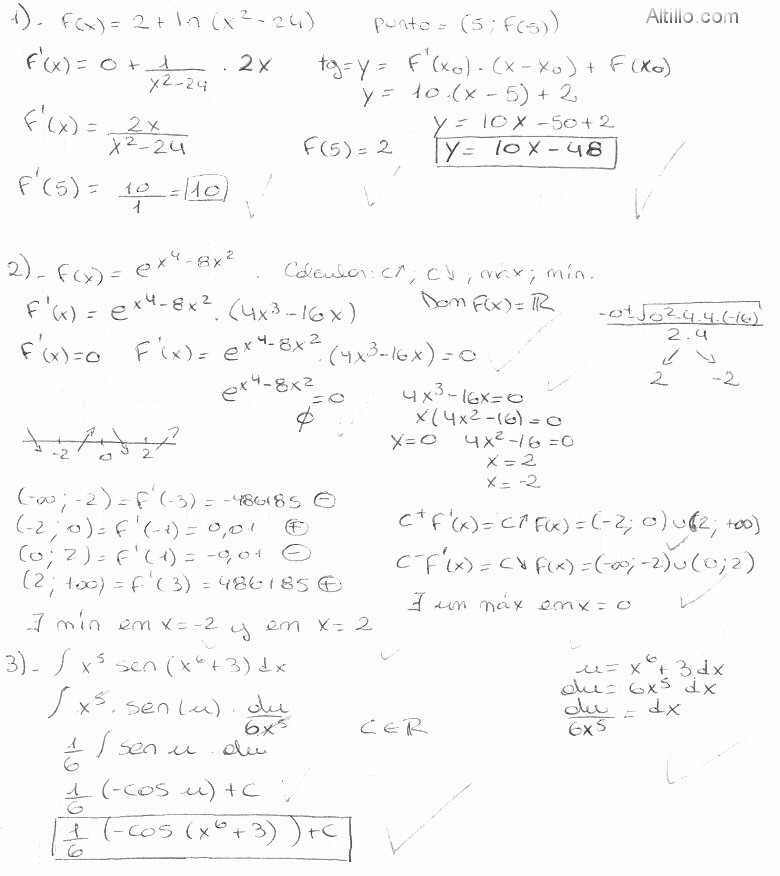 Altillo.com
1). F(x) = 2 + ln (x² - 24)    punto = (5 ; F(5))
F'(x) = 0 + 1/(x² - 24) . 2x    tg = y = F'(x₀) . (x - x₀) + F(x₀)
y = 10.(x - 5) + 2
F'(x) = 2x/(x² - 24)    y = 10x - 50 + 2
F(5) = 2    y = 10x - 48
F'(5) = 10/1 = 10
2) - F(x) = e^(x⁴ - 8x²) . Calcular: C↗, C↘, máx; mín.
F'(x) = e^(x⁴ - 8x²) . (4x³ - 16x)    Dom F(x) = ℝ    -0 ± √(0² - 4.4.(-16)) / 2.4
F'(x) = 0    F'(x) = e^(x⁴ - 8x²) . (4x³ - 16x) = 0
2    -2
e^(x⁴ - 8x²) = 0    4x³ - 16x = 0
∅    x(4x² - 16) = 0
x = 0    4x² - 16 = 0
-2    0    2
x = 2
x = -2
(-∞; -2) = F'(-3) = -486185 ⊖
(-2; 0) = F'(-1) = 0,01 ⊕    C⁺ F'(x) = C↗ F(x) = (-2; 0) ∪ (2; +∞)
(0; 2) = F'(1) = -0,01 ⊖    C⁻ F'(x) = C↘ F(x) = (-∞; -2) ∪ (0; 2)
(2; +∞) = F'(3) = 486185 ⊕
∃ un máx em x = 0
∃ mín em x = -2 y em x = 2
3) - ∫ x⁵ sen (x⁶ + 3) dx    u = x⁶ + 3 dx
du = 6x⁵ dx
∫ x⁵ . sen (u) . du/6x⁵    du/6x⁵ = dx
C ∈ ℝ
1/6 ∫ sen u . du
1/6 (-cos u) + C
1/6 (-cos (x⁶ + 3)) + C